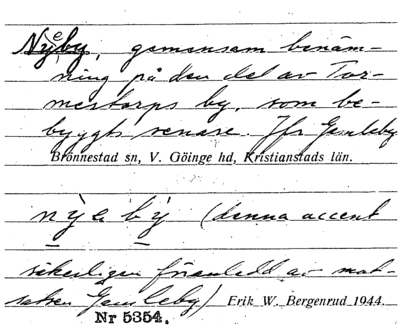 Nyeby, gemensam benäm-
ning på den del av Tor-
mestorps by, som be-
byggts senare. Jfr Gamleby
Brönnestad sn, V. Göinge hd, Kristianstads län.
nỳe bý (denna accent
säkerligen föranledd av mot-
satsen Gamleby) Erik W. Bergenrud 1944.
Nr 5354.